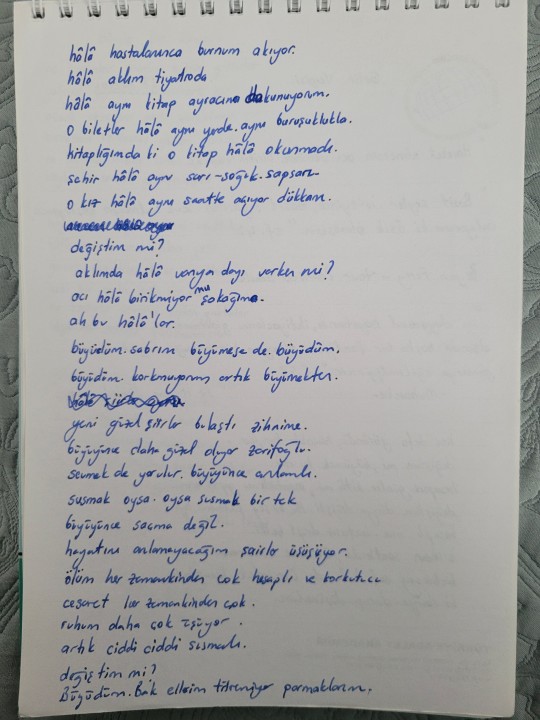 hâlâ hastalanınca burnum akıyor.
hâlâ aklım tiyatroda
hâlâ aynı kitap ayracına dokunuyorum.
o biletler hâlâ aynı yerde. aynı buruşuklukla.
kitaplığımda ki o kitap hâlâ okunmadı.
şehir hâlâ aynı sarı-soğuk. sapsarı.
o kız hâlâ aynı saatte açıyor dükkanı.
değiştim mi?
aklımda hâlâ vanya dayı varken mi?
acı hâlâ birikmiyor mu sokağıma.
ah bu hâlâ'lar.
büyüdüm. sabrım büyümese de. büyüdüm.
büyüdüm. korkmuyorum artık büyümekten.
yeni güzel şiirler bulaştı zihnime.
büyüyünce daha güzel diyor zarifoğlu.
sevmek de yorulur. büyüyünce anlamlı.
susmak oysa. oysa susmak bir tek
büyüyünce saçma değil.
hayatını anlamayacağım şairler üşüşüyor.
ölüm her zamankinden çok hesaplı ve korkutucu
cesaret her zamankinden çok.
ruhum daha çok üşüyor.
artık ciddi ciddi susmalı.
değiştim mi?
Büyüdüm. Bak ellerim titremiyor parmaklarım.